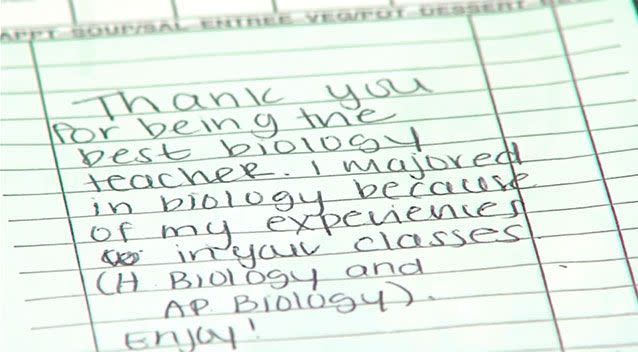 APPT SOUP/SAL ENTREE VEG/POT DESSERT
Thank you
for being the
best biology
teacher. I majored
in biology because
of my experiences
in your classes
(H. Biology and
AP. Biology).
Enjoy!